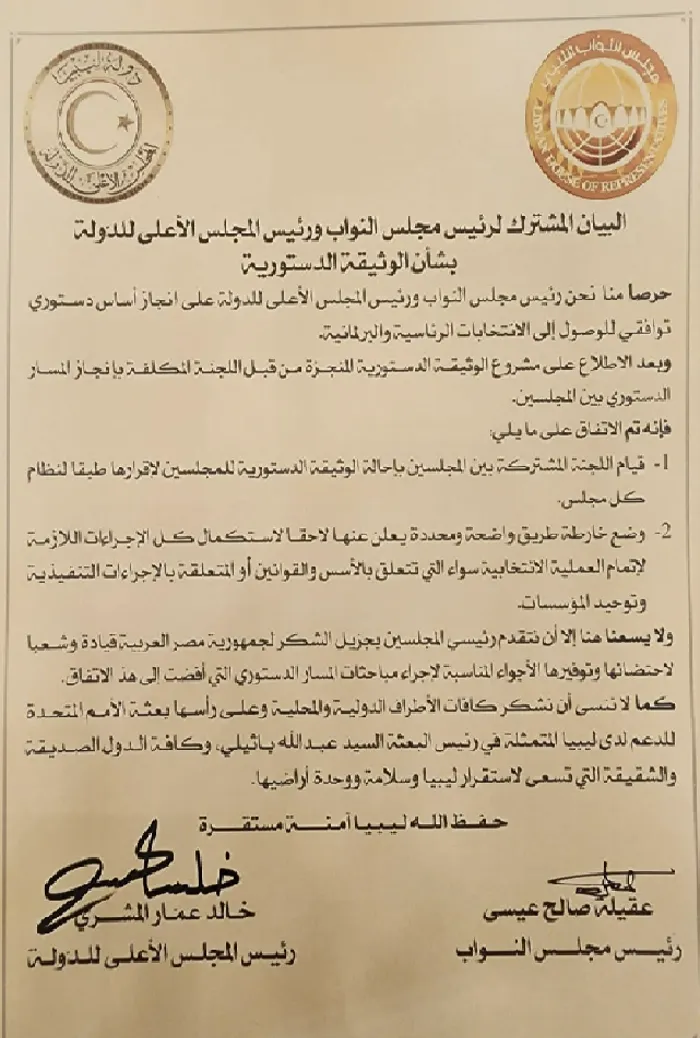 دولة ليبيا
المجلس الأعلى للدولة
مجلس النواب الليبي
LIBYAN HOUSE OF REPRESENTATIVES
البيان المشترك لرئيس مجلس النواب ورئيس المجلس الأعلى للدولة
بشأن الوثيقة الدستورية
حرصا منا نحن رئيس مجلس النواب ورئيس المجلس الأعلى للدولة على انجاز أساس دستوري
توافقي للوصول إلى الانتخابات الرئاسية والبرلمانية.
وبعد الاطلاع على مشروع الوثيقة الدستورية المنجزة من قبل اللجنة المكلفة بإنجاز المسار
الدستوري بين المجلسين.
فإنه تم الاتفاق على ما يلي:
1- قيام اللجنة المشتركة بين المجلسين بإحالة الوثيقة الدستورية للمجلسين لإقرارها طبقا لنظام
كل مجلس.
2- وضع خارطة طريق واضحة ومحددة يعلن عنها لاحقا لاستكمال كل الإجراءات اللازمة
لإتمام العملية الانتخابية سواء التي تتعلق بالأسس والقوانين أو المتعلقة بالإجراءات التنفيذية
وتوحيد المؤسسات.
ولا يسعنا هنا إلا أن نتقدم رئيسي المجلسين بجزيل الشكر لجمهورية مصر العربية قيادة وشعبا
لاحتضانها وتوفيرها الأجواء المناسبة لإجراء مباحثات المسار الدستوري التي أفضت إلى هذ الاتفاق.
كما لا ننسى أن نشكر كافات الأطراف الدولية والمحلية وعلى رأسها بعثة الأمم المتحدة
للدعم لدى ليبيا المتمثلة في رئيس البعثة السيد عبد الله باثيلي، وكافة الدول الصديقة
والشقيقة التي تسعى لاستقرار ليبيا وسلامة ووحدة أراضيها.
حفظ الله ليبيا آمنة مستقرة
عقيلة صالح عيسى
رئيس مجلس النواب
خالد عمار المشري
رئيس المجلس الأعلى للدولة